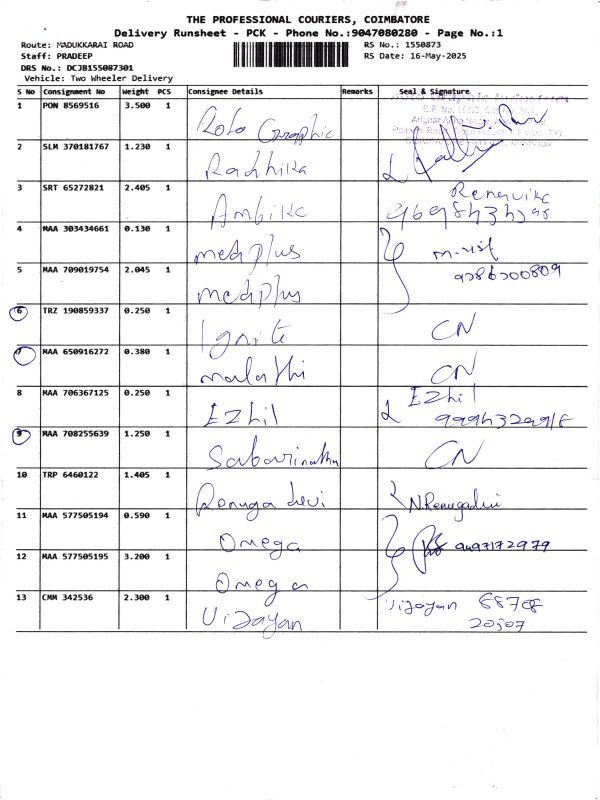 THE PROFESSIONAL COURIERS, COIMBATORE
Delivery Runsheet - PCK - Phone No.:9047080280 - Page No.:1
Route: MADUKKARAI ROAD RS No.: 1550873
Staff: PRADEEP RS Date: 16-May-2025
DRS No.: DCJB155087301
Vehicle: Two Wheeler Delivery
S No Consignment No Weight PCS Consignee Details Remarks Seal & Signature
1 PON 8569516 3.500 1 Roto Graphic
2 SLM 370181767 1.230 1 Radhika
3 SRT 65272821 2.405 1 Ambika Renuvika
4 MAA 303434661 0.130 1 medplus
5 MAA 709019754 2.045 1 medplus 9786200809
6 TRZ 190859337 0.250 1 Ignite CN
7 MAA 650916272 0.380 1 malathi CN
8 MAA 706367125 0.250 1 EZhil EZhil
9 MAA 708255639 1.250 1 Sabarinathan CN
10 TRP 6460122 1.405 1 Renuga devi N.Renugadevi
11 MAA 577505194 0.590 1 Omega 9497172979
12 MAA 577505195 3.200 1 Omega
13 CMM 342536 2.300 1 Vijayan Vijayan 68708
20507